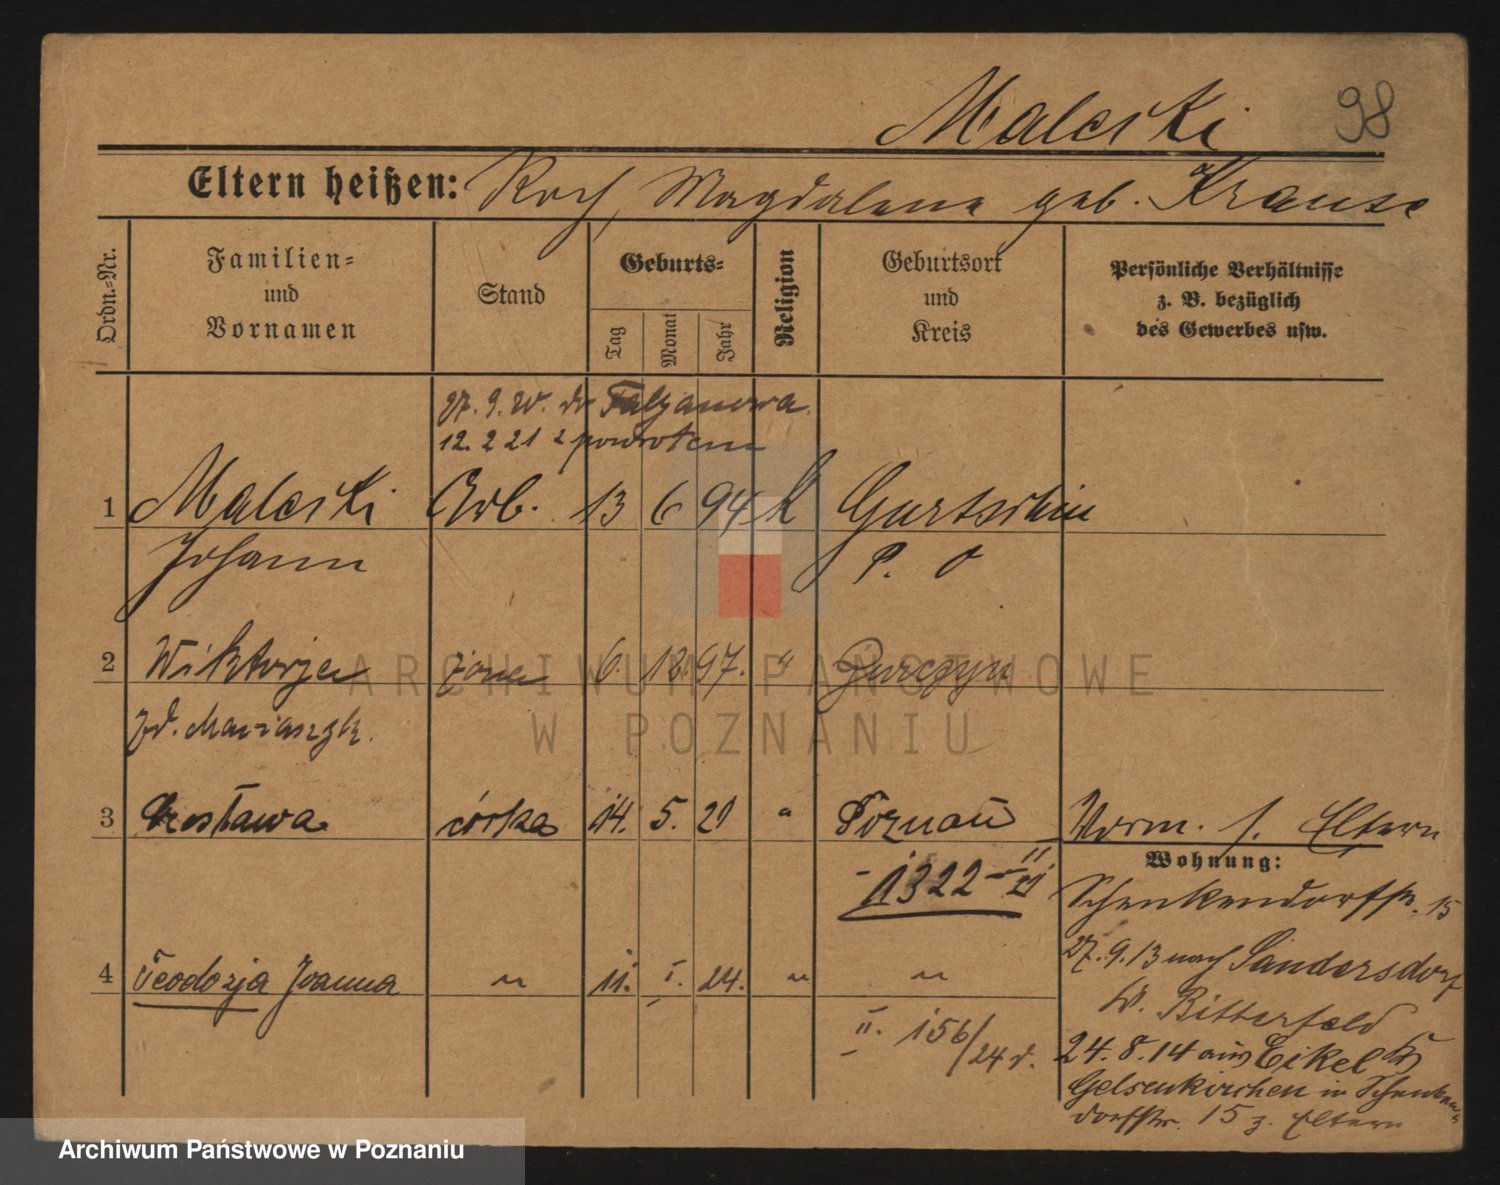 98
Maleski
Eltern heißen: Roch, Magdalena geb. Krause
Ordn.-Nr.
Familien-
und
Vornamen
Stand
Geburts-
Tag
Monat
Jahr
Religion
Geburtsort
und
Kreis
Persönliche Verhältnisse
z. B. bezüglich
des Gewerbes usw.
27. 9. 20. do Falzanowa
12. 2 21 z powrotem
1 Maleski Arb. 13 6 94 K Gurtschin
Johann P. O
2 Wiktorja żona 6. 12. 97. " Gurczyn
zd. Mariaszyk.
3 Czesława córka 14. 5. 21 " Poznań Worm. s. Eltern
Wohnung:
1322 II/21
Schenkendorfstr. 15
4 Teodozja Joanna " 11. I. 24. " "
27. 9. 13 nach Sandersdorf
Kr. Bitterfeld
II. 156/24 d.
24. 8. 14 aus Eikel Kr
Gelsenkirchen in Schenken
dorfstr. 15 z. Eltern
ARCHIWUM PAŃSTWOWE
W POZNANIU
Archiwum Państwowe w Poznaniu